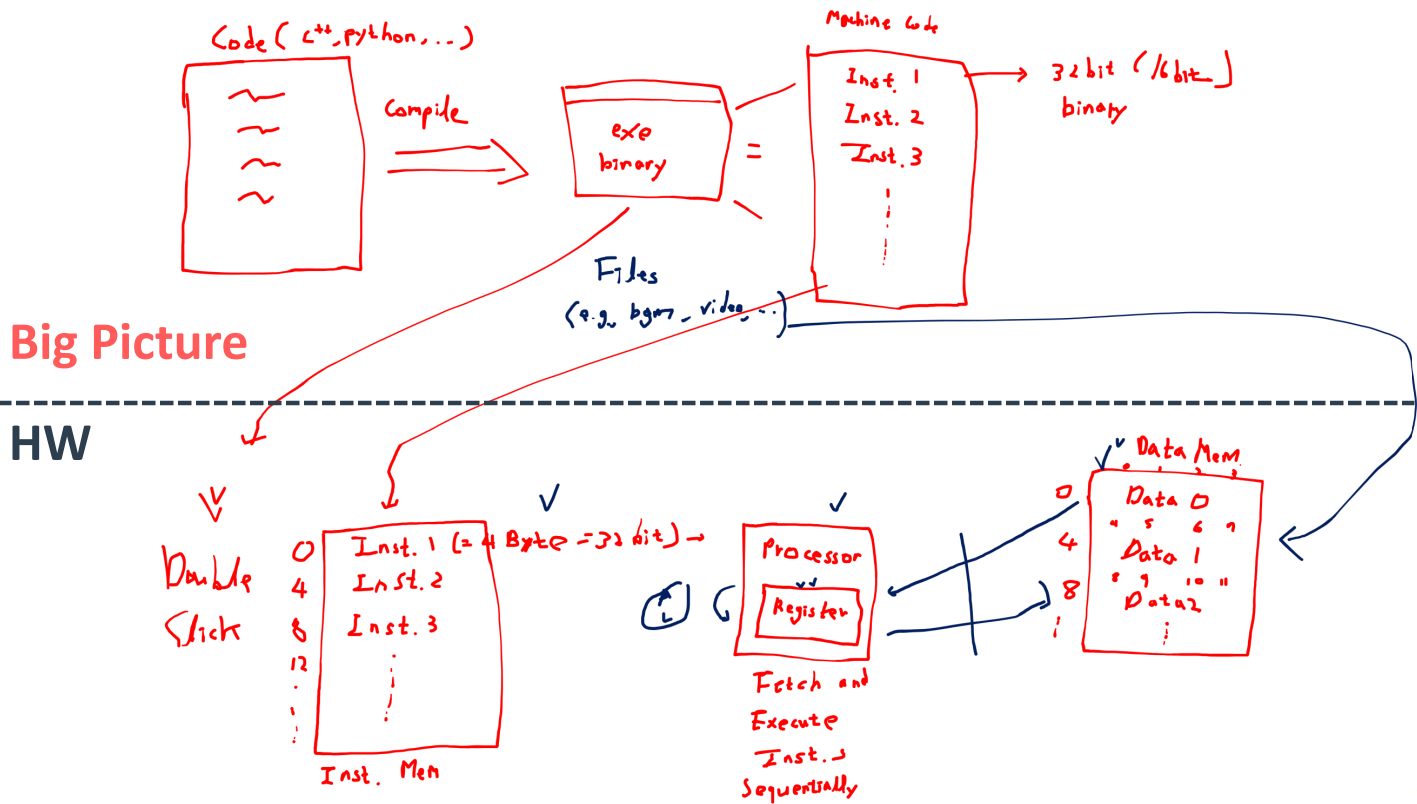 Code ( C++, python, ... )
Compile
exe
binary
=
Machine Code
Inst. 1
Inst. 2
Inst. 3
32 bit (16 bit)
binary
Files
(e.g., bgm, video, ...)
Big Picture
HW
Double
Click
0
4
8
12
Inst. 1 (= 4 Byte = 32 bit)
Inst. 2
Inst. 3
Inst. Mem
Processor
Register
Fetch and
Execute
Inst.s
Sequentially
Data Mem
0 1 2 3
0 Data 0
4 5 6 7
4 Data 1
8 9 10 11
8 Data 2